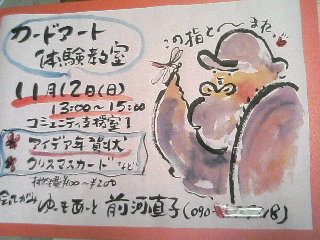 カードアート
体験教室
この指と〜まれ
11月12日(日)
13:00〜15:00
コミュニティ支援室1
アイデア年賀状
クリスマスカード など
材料費¥100〜¥200
絵てがみ ゆーもあーと 前河直子(090-
8)